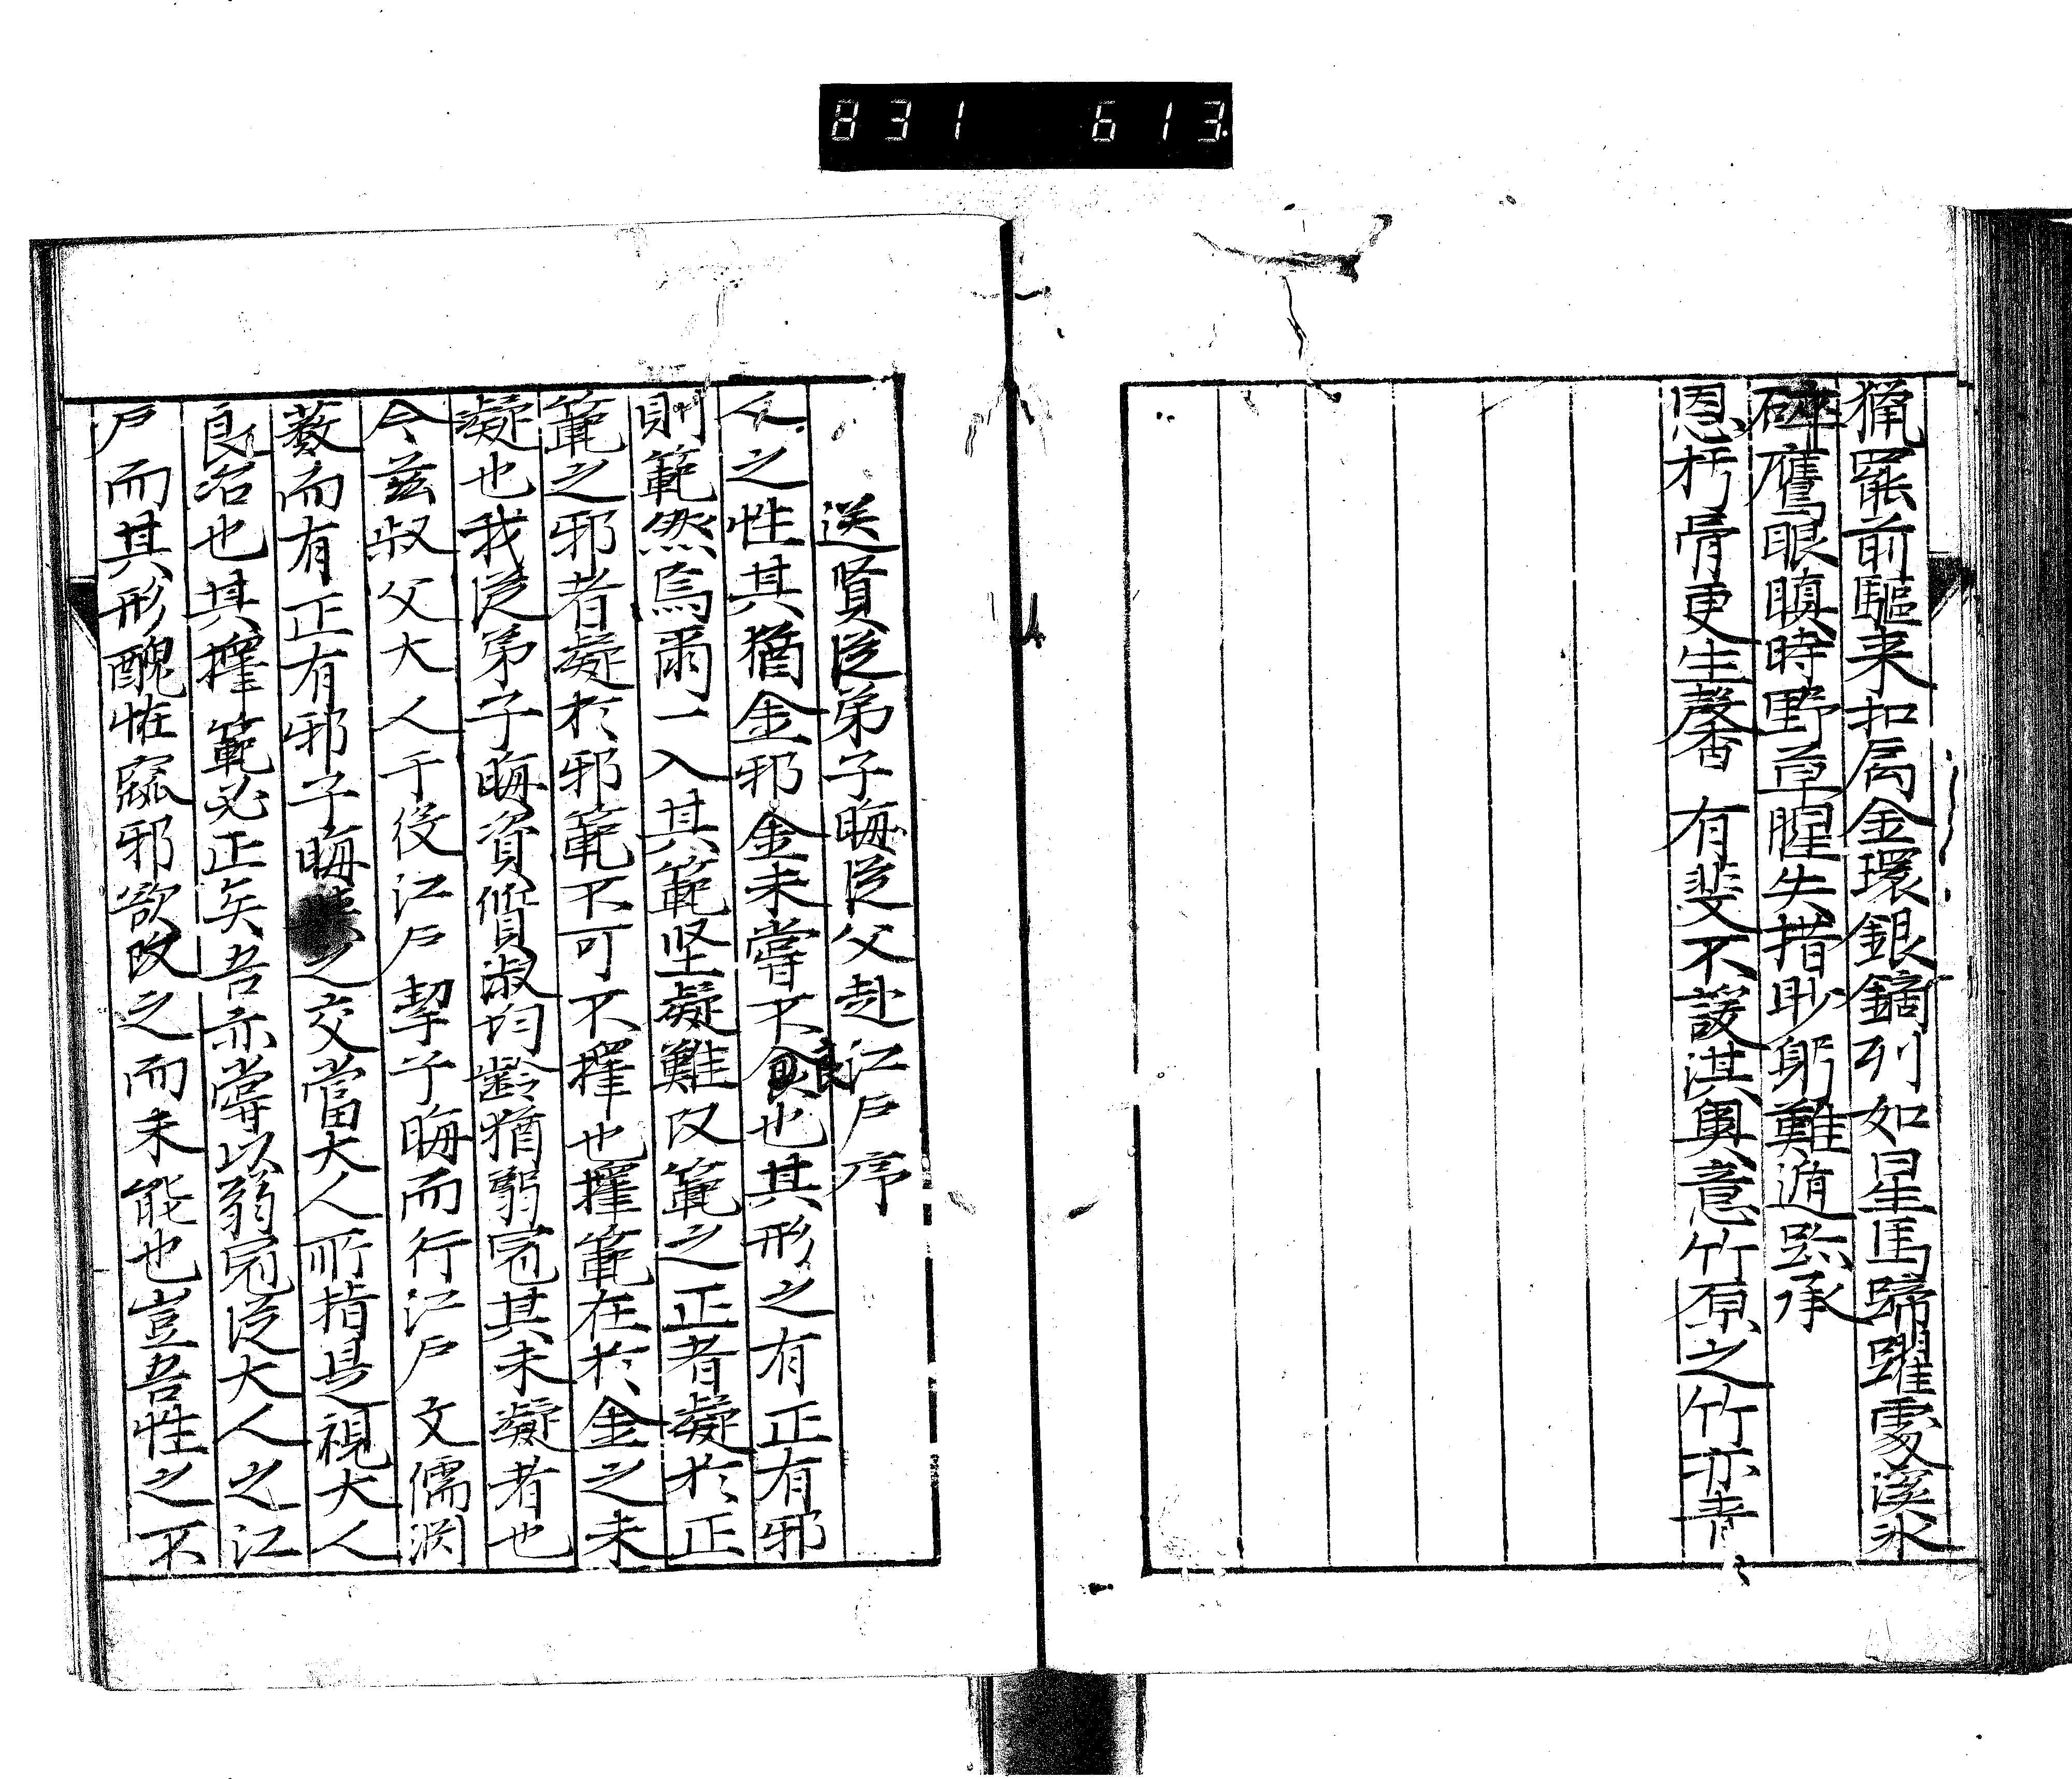 831 613.
猟罷前驅来扣扃金環銀鏑列如星馬蹄躍處溪氷
砕鷹眼瞋時野草腥失措眇躬難遁跡承
恩朽骨更生馨有斐不諼淇奧意竹原之竹亦青
送賢従弟子晦従父赴江戸序
人之性其猶金邪金未嘗不良也其形之有正有邪
則範然焉爾一入其範坚凝難改範之正者凝於正
範之邪者凝於邪範不可不擇也擇範在於金之未
凝也我従弟子晦資質淑均齢猶弱冠其未凝者也
今茲叔父大人于役江戸挈子晦而行江戸文儒渕
薮而有正有邪子晦之交當大人所指是視大人
良冶也其擇範必正矣吾亦嘗以弱冠従大人之江
戸而其形醜恠窳邪欲改之而未能也豈吾性之不